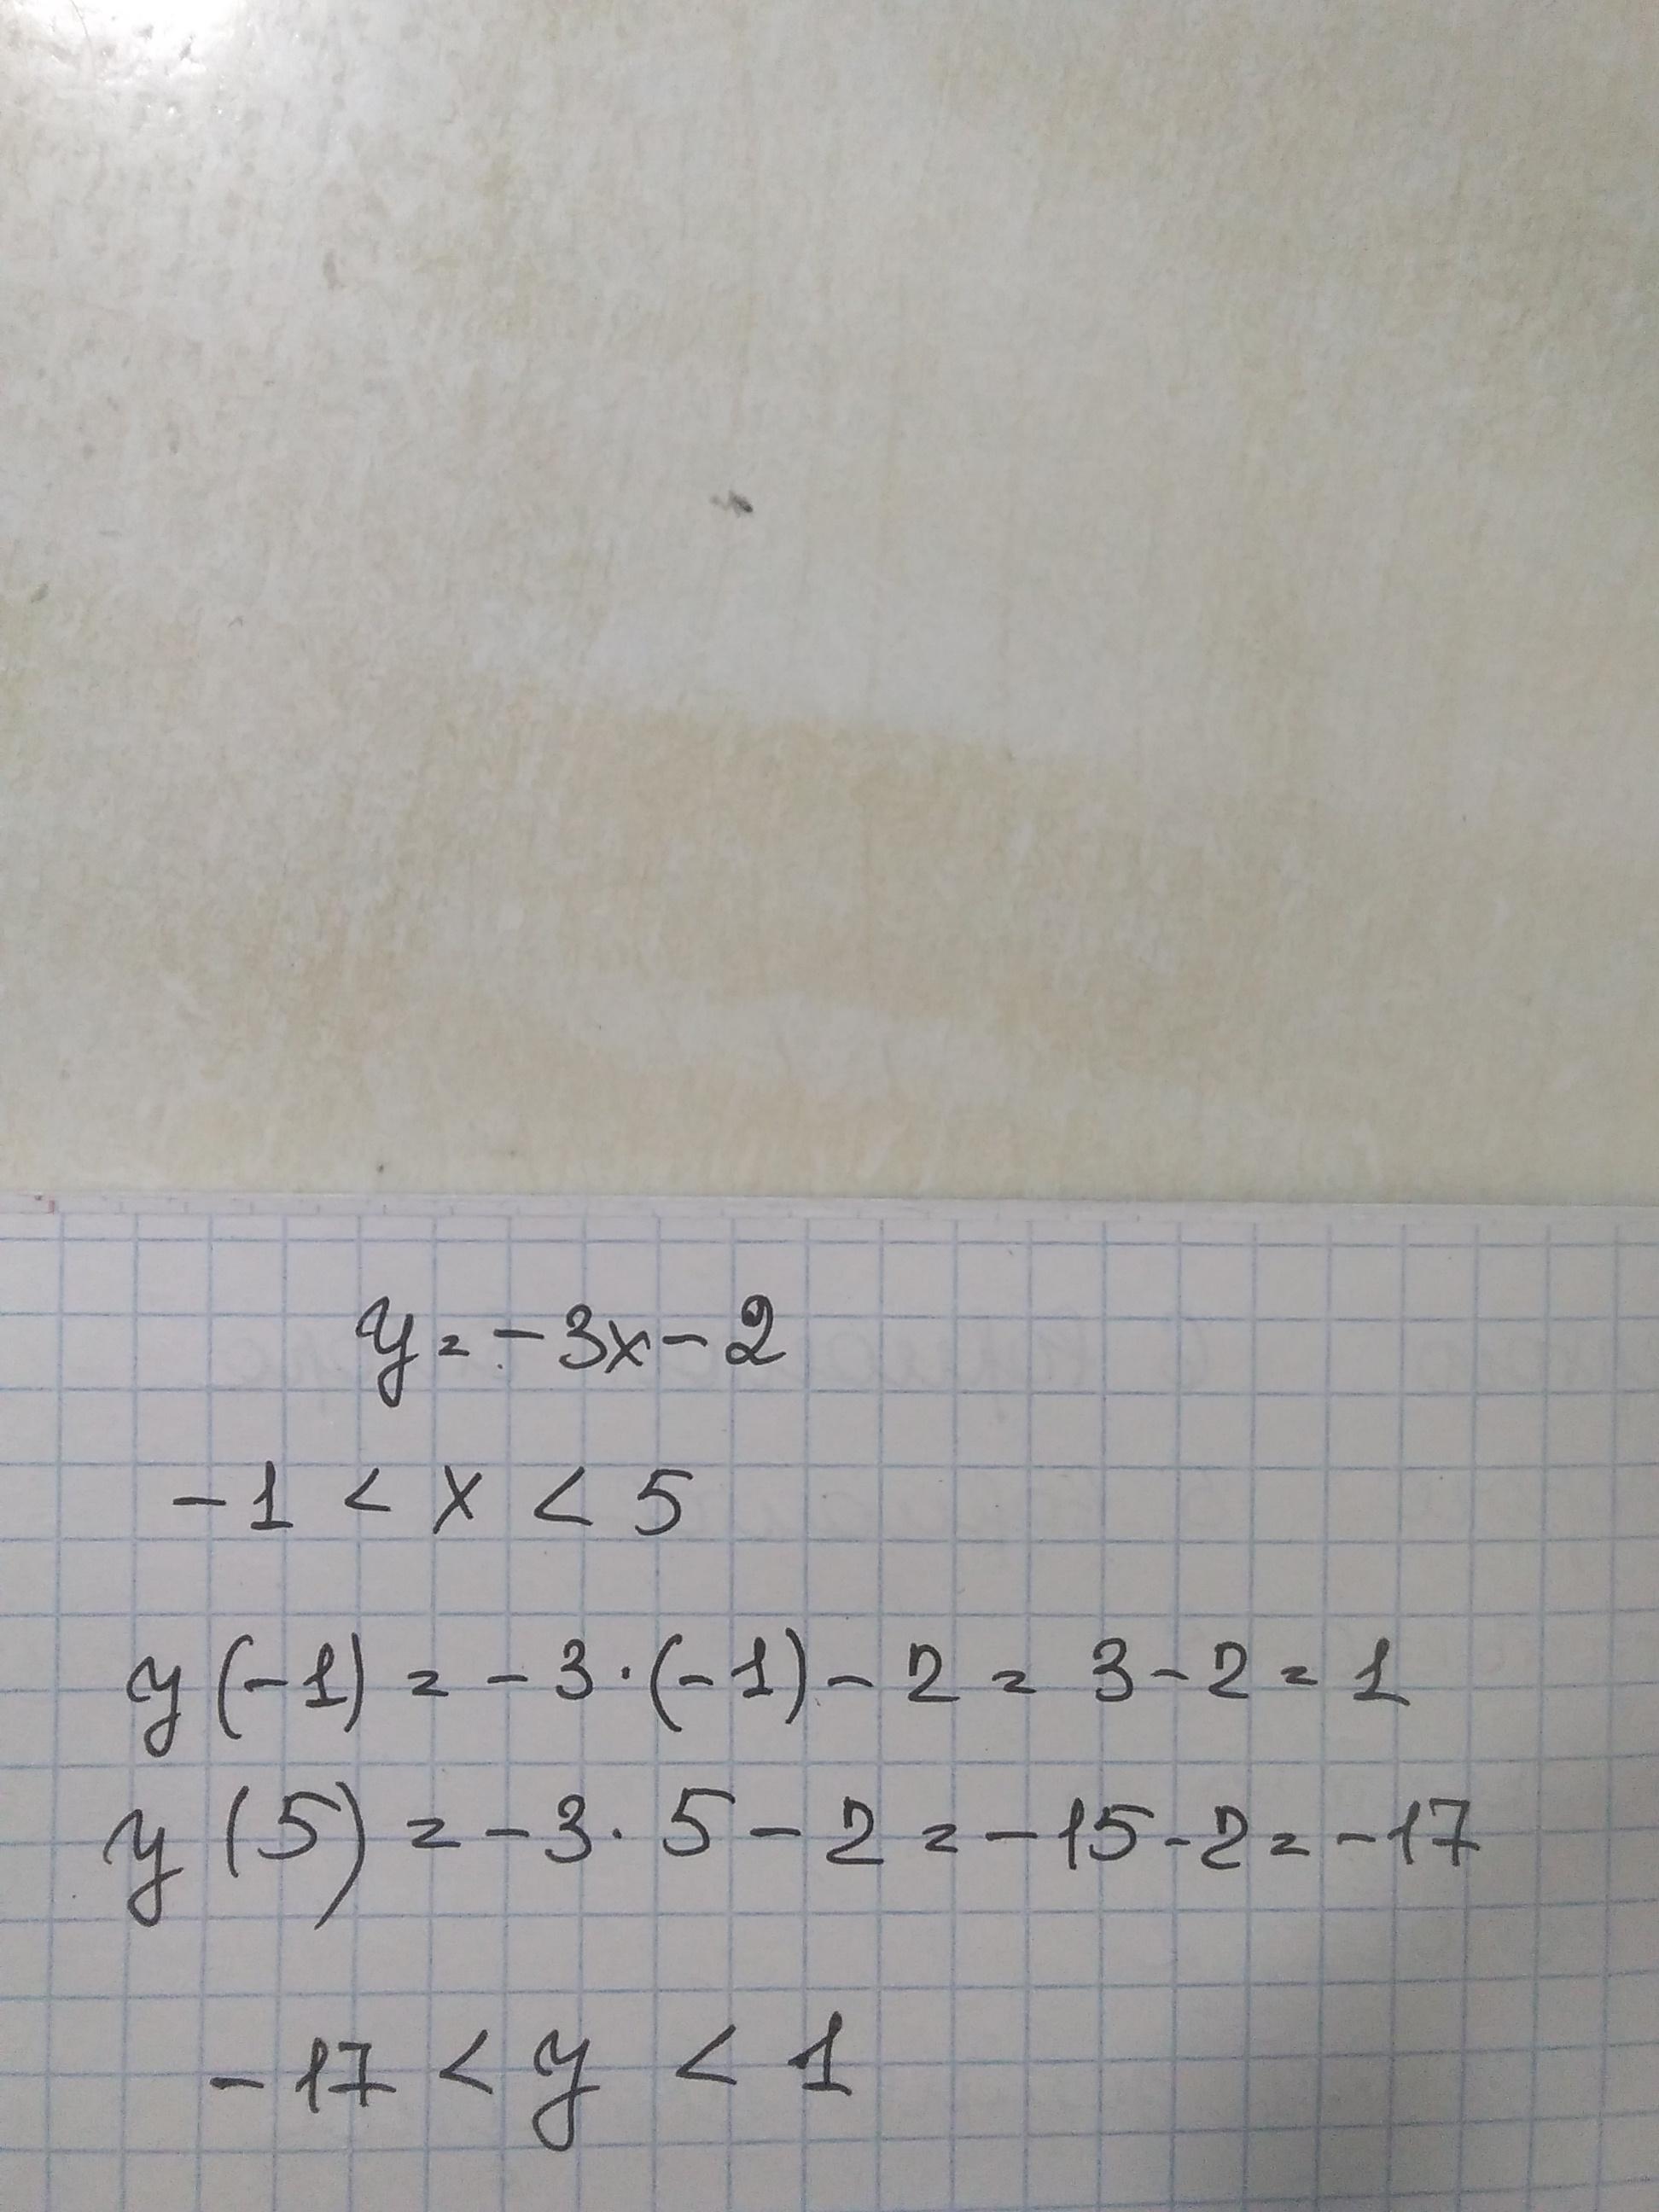 y = -3x - 2
-1 < x < 5
y(-1) = -3·(-1) - 2 = 3 - 2 = 1
y(5) = -3·5 - 2 = -15 - 2 = -17
-17 < y < 1